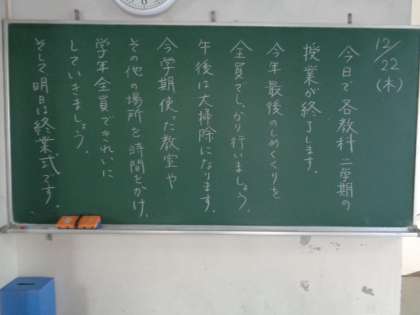 12/22(木)
今日で各教科二学期の
授業が終了します。
今年最後のしめくくりを
全員でしっかり行いましょう。
午後は大掃除になります。
今学期使った教室や
その他の場所を時間をかけ、
学年全員できれいに
していきましょう。
そして明日は終業式です。